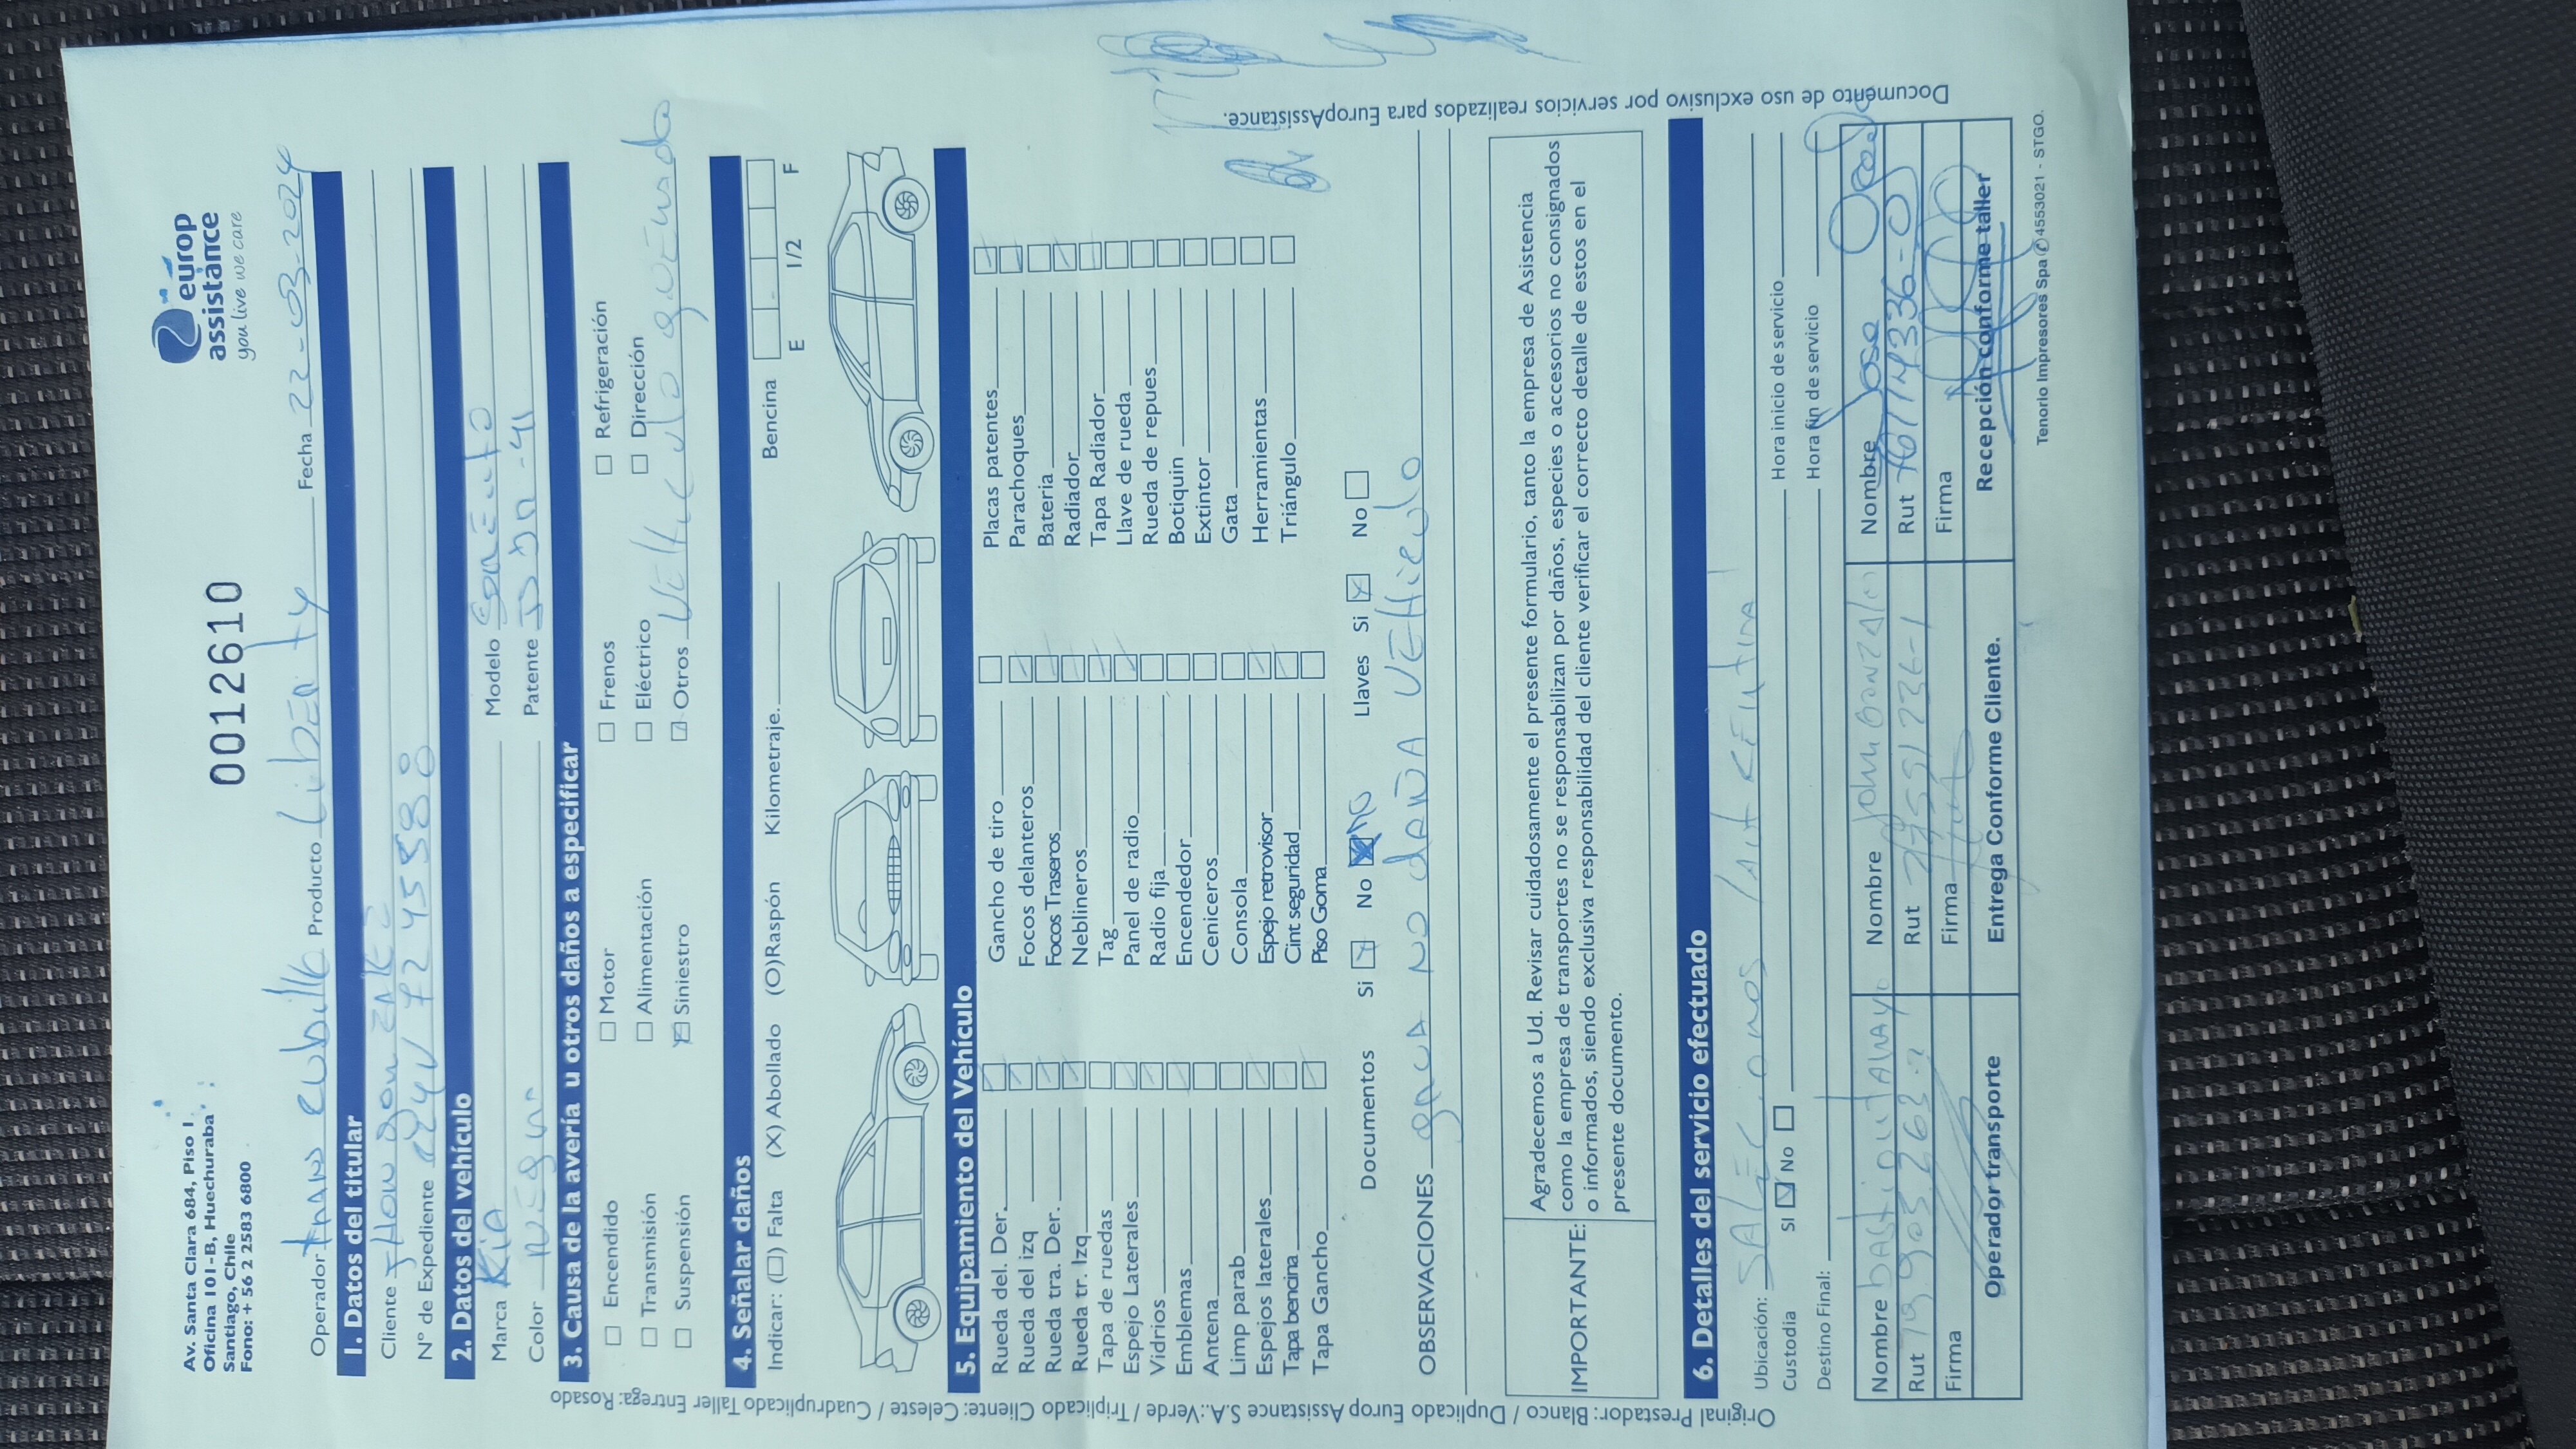 Av. Santa Clara 684, Piso 1
Oficina 101-B, Huechuraba
Santiago, Chile
Fono: + 56 2 2583 6800
0012610
europ
assistance
you live we care
Operador Producto Liberty Fecha 22-03-2024
1. Datos del titular
Cliente Jhon
N° de Expediente
2. Datos del vehículo
Marca Kia Modelo
Color Negro Patente
3. Causa de la avería u otros daños a especificar
☐ Encendido ☐ Motor ☐ Frenos ☐ Refrigeración
☐ Transmisión ☐ Alimentación ☐ Eléctrico ☐ Dirección
☐ Suspensión ☒ Siniestro ☑ Otros
4. Señalar daños
Indicar: (☐) Falta (X) Abollado (O)Raspón Kilometraje. Bencina E 1/2 F
5. Equipamiento del Vehículo
Rueda del. Der. Gancho de tiro Placas patentes
Rueda del izq Focos delanteros Parachoques
Rueda tra. Der. Focos Traseros Bateria
Rueda tr. Izq Neblineros Radiador
Tapa de ruedas Tag Tapa Radiador
Espejo Laterales Panel de radio Llave de rueda
Vidrios Radio fija Rueda de repues
Emblemas Encendedor Botiquin
Antena Ceniceros Extintor
Limp parab Consola Gata
Espejos laterales Espejo retrovisor Herramientas
Tapa bencina Cint seguridad Triángulo
Tapa Gancho Piso Goma
Documentos Si ☑ No ☒ No Llaves Si ☒ No ☐
OBSERVACIONES grua no daña vehiculo
IMPORTANTE: Agradecemos a Ud. Revisar cuidadosamente el presente formulario, tanto la empresa de Asistencia
como la empresa de transportes no se responsabilizan por daños, especies o accesorios no consignados
o informados, siendo exclusiva responsabilidad del cliente verificar el correcto detalle de estos en el
presente documento.
6. Detalles del servicio efectuado
Ubicación:
Custodia SI ☑ No ☐ Hora inicio de servicio
Destino Final: Hora fin de servicio
Nombre Nombre John Gonzalez Nombre Jose
Rut Rut Rut
Firma Firma Firma
Operador transporte Entrega Conforme Cliente. Recepción conforme taller
Tenorio Impresores Spa 4553021 - STGO.
Original Prestador: Blanco / Duplicado Europ Assistance S.A.:Verde / Triplicado Cliente: Celeste / Cuadruplicado Taller Entrega: Rosado
Documento de uso exclusivo por servicios realizados para EuropAssistance.